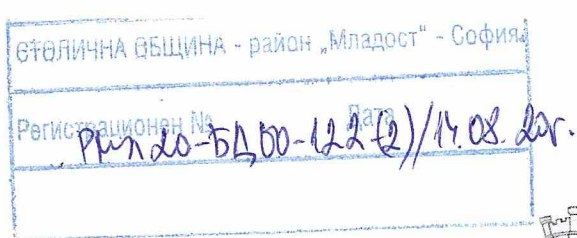 СТОЛИЧНА ОБЩИНА - район „Младост“ - София
Регистрационен № Дата
РМЛ20-БД00-122-(2)/14.08.20г.